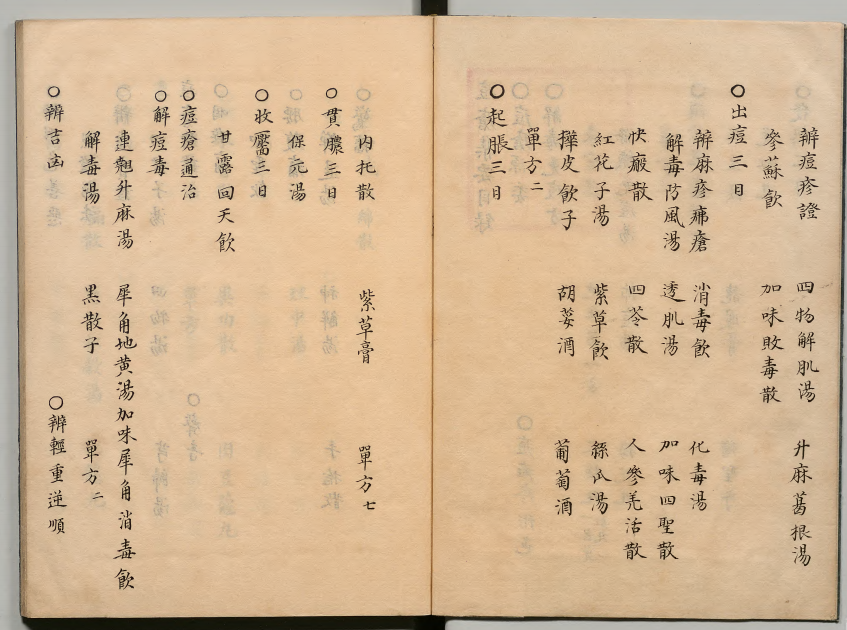 辨痘疹證 四物解肌湯 升麻葛根湯
參蘇飲 加味敗毒散
○出痘三日
辨麻疹疿瘡 消毒飲 化毒湯
解毒防風湯 透肌湯 加味四聖散
快癍散 四苓散 人參羌活散
紅花子湯 紫草飲 絲瓜湯
樺皮飲子 胡荽酒 葡萄酒
單方二
○起脹三日
內托散 紫草膏 單方七
○貫膿三日
保元湯
○收靨三日
甘露回天飲
○痘瘡通治
○解痘毒
連翹升麻湯 犀角地黄湯加味犀角消毒飲
解毒湯 黑散子 單方二
○辨吉凶 ○辨輕重逆順